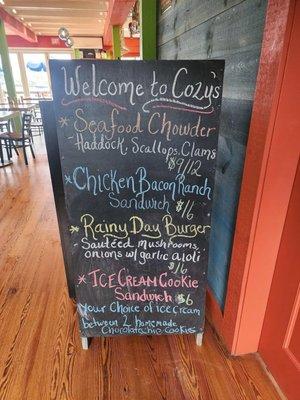 Welcome to Cozy's
* Seafood Chowder
Haddock, Scallops, Clams
$9/12
* Chicken Bacon Ranch
Sandwich $16
* Rainy Day Burger
Sautéed mushrooms,
onions w/ garlic aioli
$16
* ICE CREAM COOKIE
Sandwich $6
Your Choice of ice cream
between 2 homemade
Chocolate chip cookies